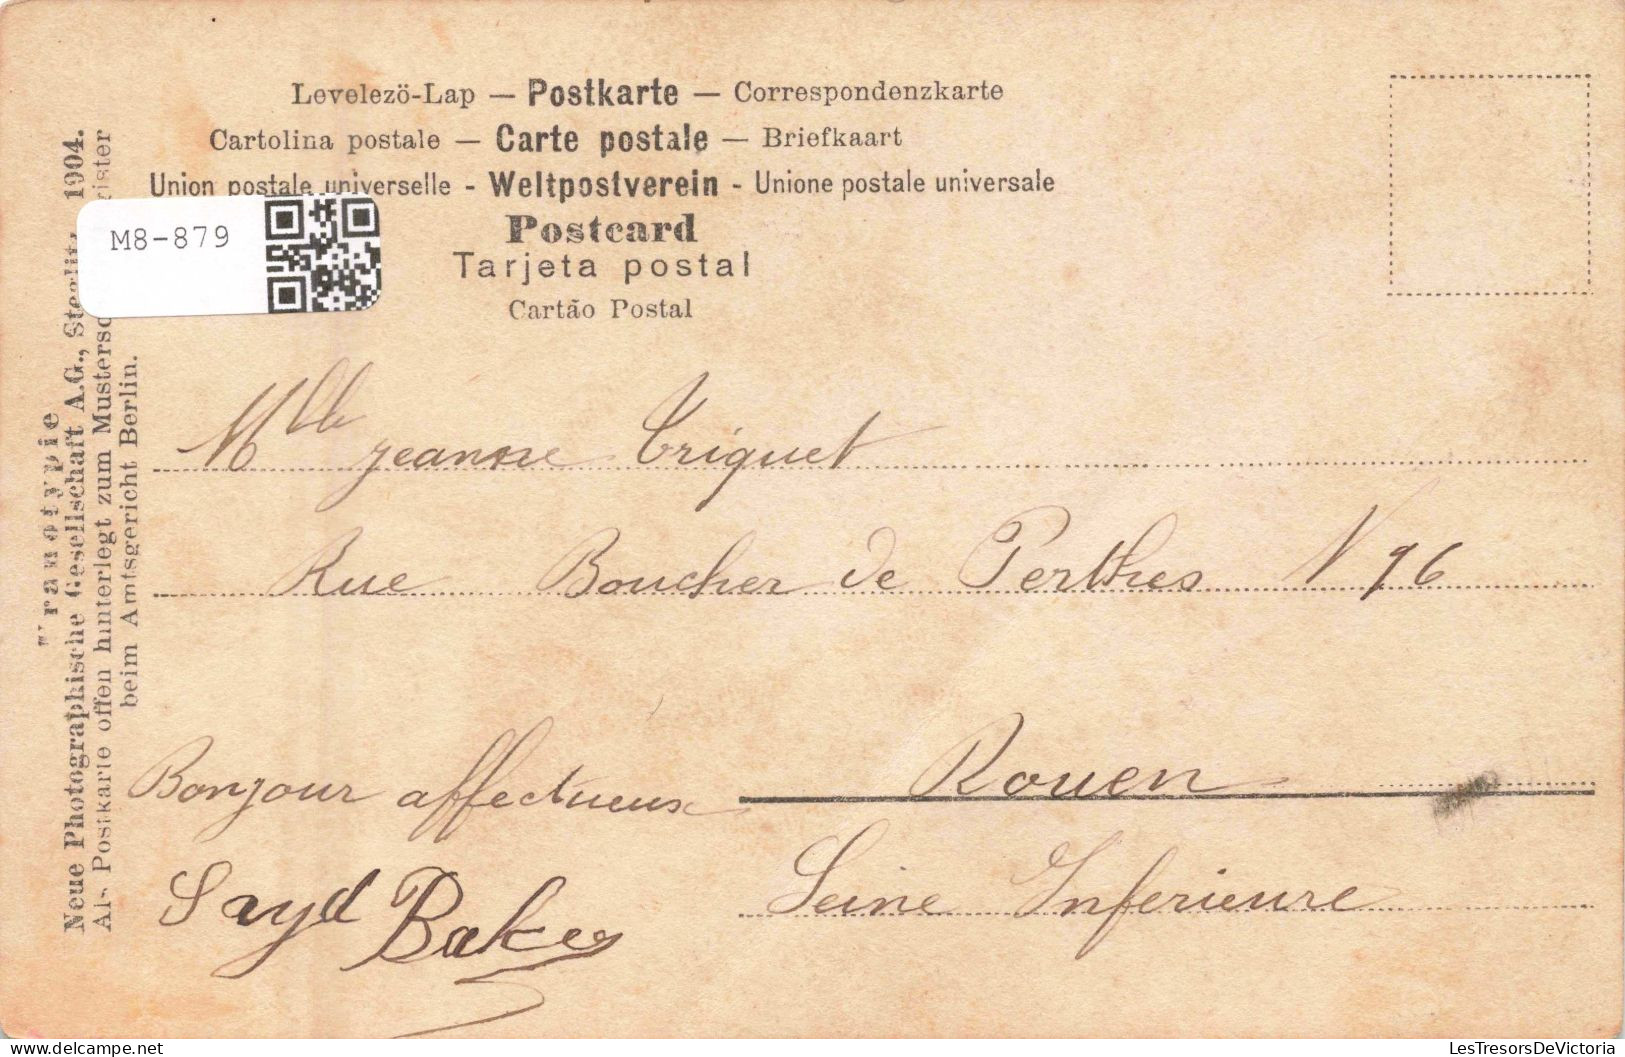 Levelezö-Lap — Postkarte — Correspondenzkarte
Cartolina postale — Carte postale — Briefkaart
Union postale universelle - Weltpostverein - Unione postale universale
Postcard
Tarjeta postal
Cartão Postal
M8-879
Uranotypie
Neue Photographische Gesellschaft A.G., Steglitz 1904.
Als Postkarte offen hinterlegt zum
beim Amtsgericht Berlin.
Mlle jeanne Triquet
Rue Boucher de Perthes N 96
Rouen
Seine Inferieure
Bonjour affectueux
Sayd
LesTresorsDeVictoria